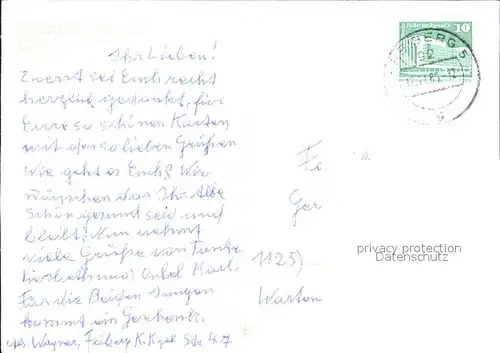 Ihr Lieben!
Zuerst sei Euch recht
herzlich gedankt, für
Eure so schönen Karten
mit den so lieben Grüßen
Wie geht es Euch? Wir
wünschen das Ihr Alle
schön gesund seid und
bleibt. Nun nehmt
viele Grüße von Tante
Liesbeth und Onkel Karl.
Für die Beiden Jungen
kommt ein Geschenk.
Abs. Wagner, Freiberg K. Kgel Str. 47
10
BERG 5
Fa
Ger
1125)
Warten
privacy protection
Datenschutz